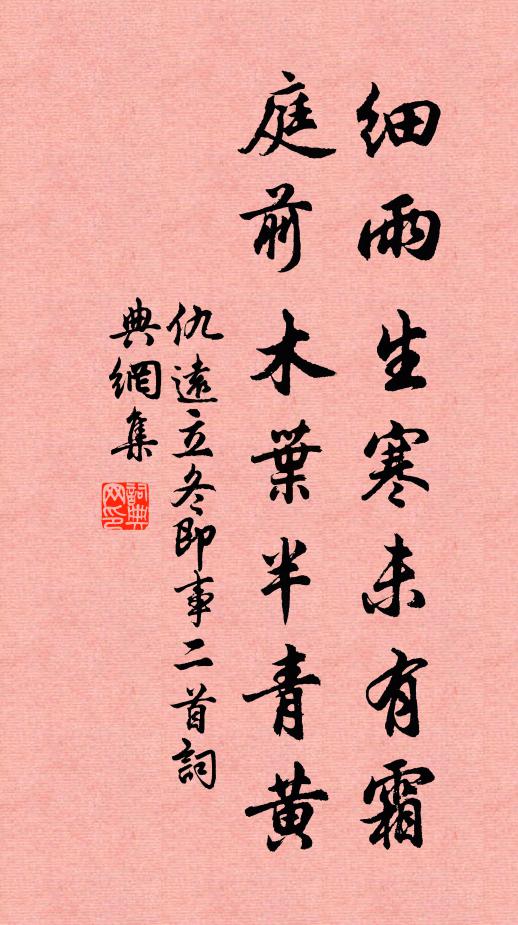 細雨生寒未有霜
庭前木葉半青黃
仇遠立冬即事二首詞
典網集
詞典
网印